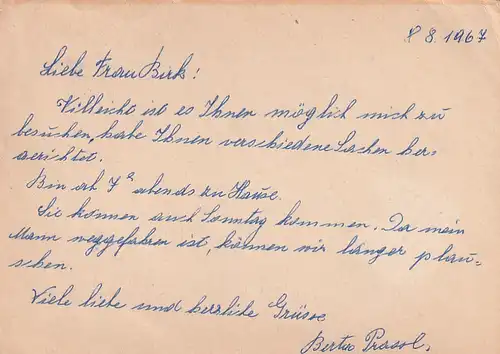 8 8. 1967
Liebe Frau Birk!
Villeicht ist es Ihnen möglich mich zu
besuchen, habe Ihnen verschiedene Sachen her=
gerichtet.
Bin ab 7 abends zu Hause.
Sie können auch Sonntag kommen. Da mein
Mann weggefahren ist, können wir länger plau=
schen.
Viele liebe und herzliche Grüsse
Berta Prasol.